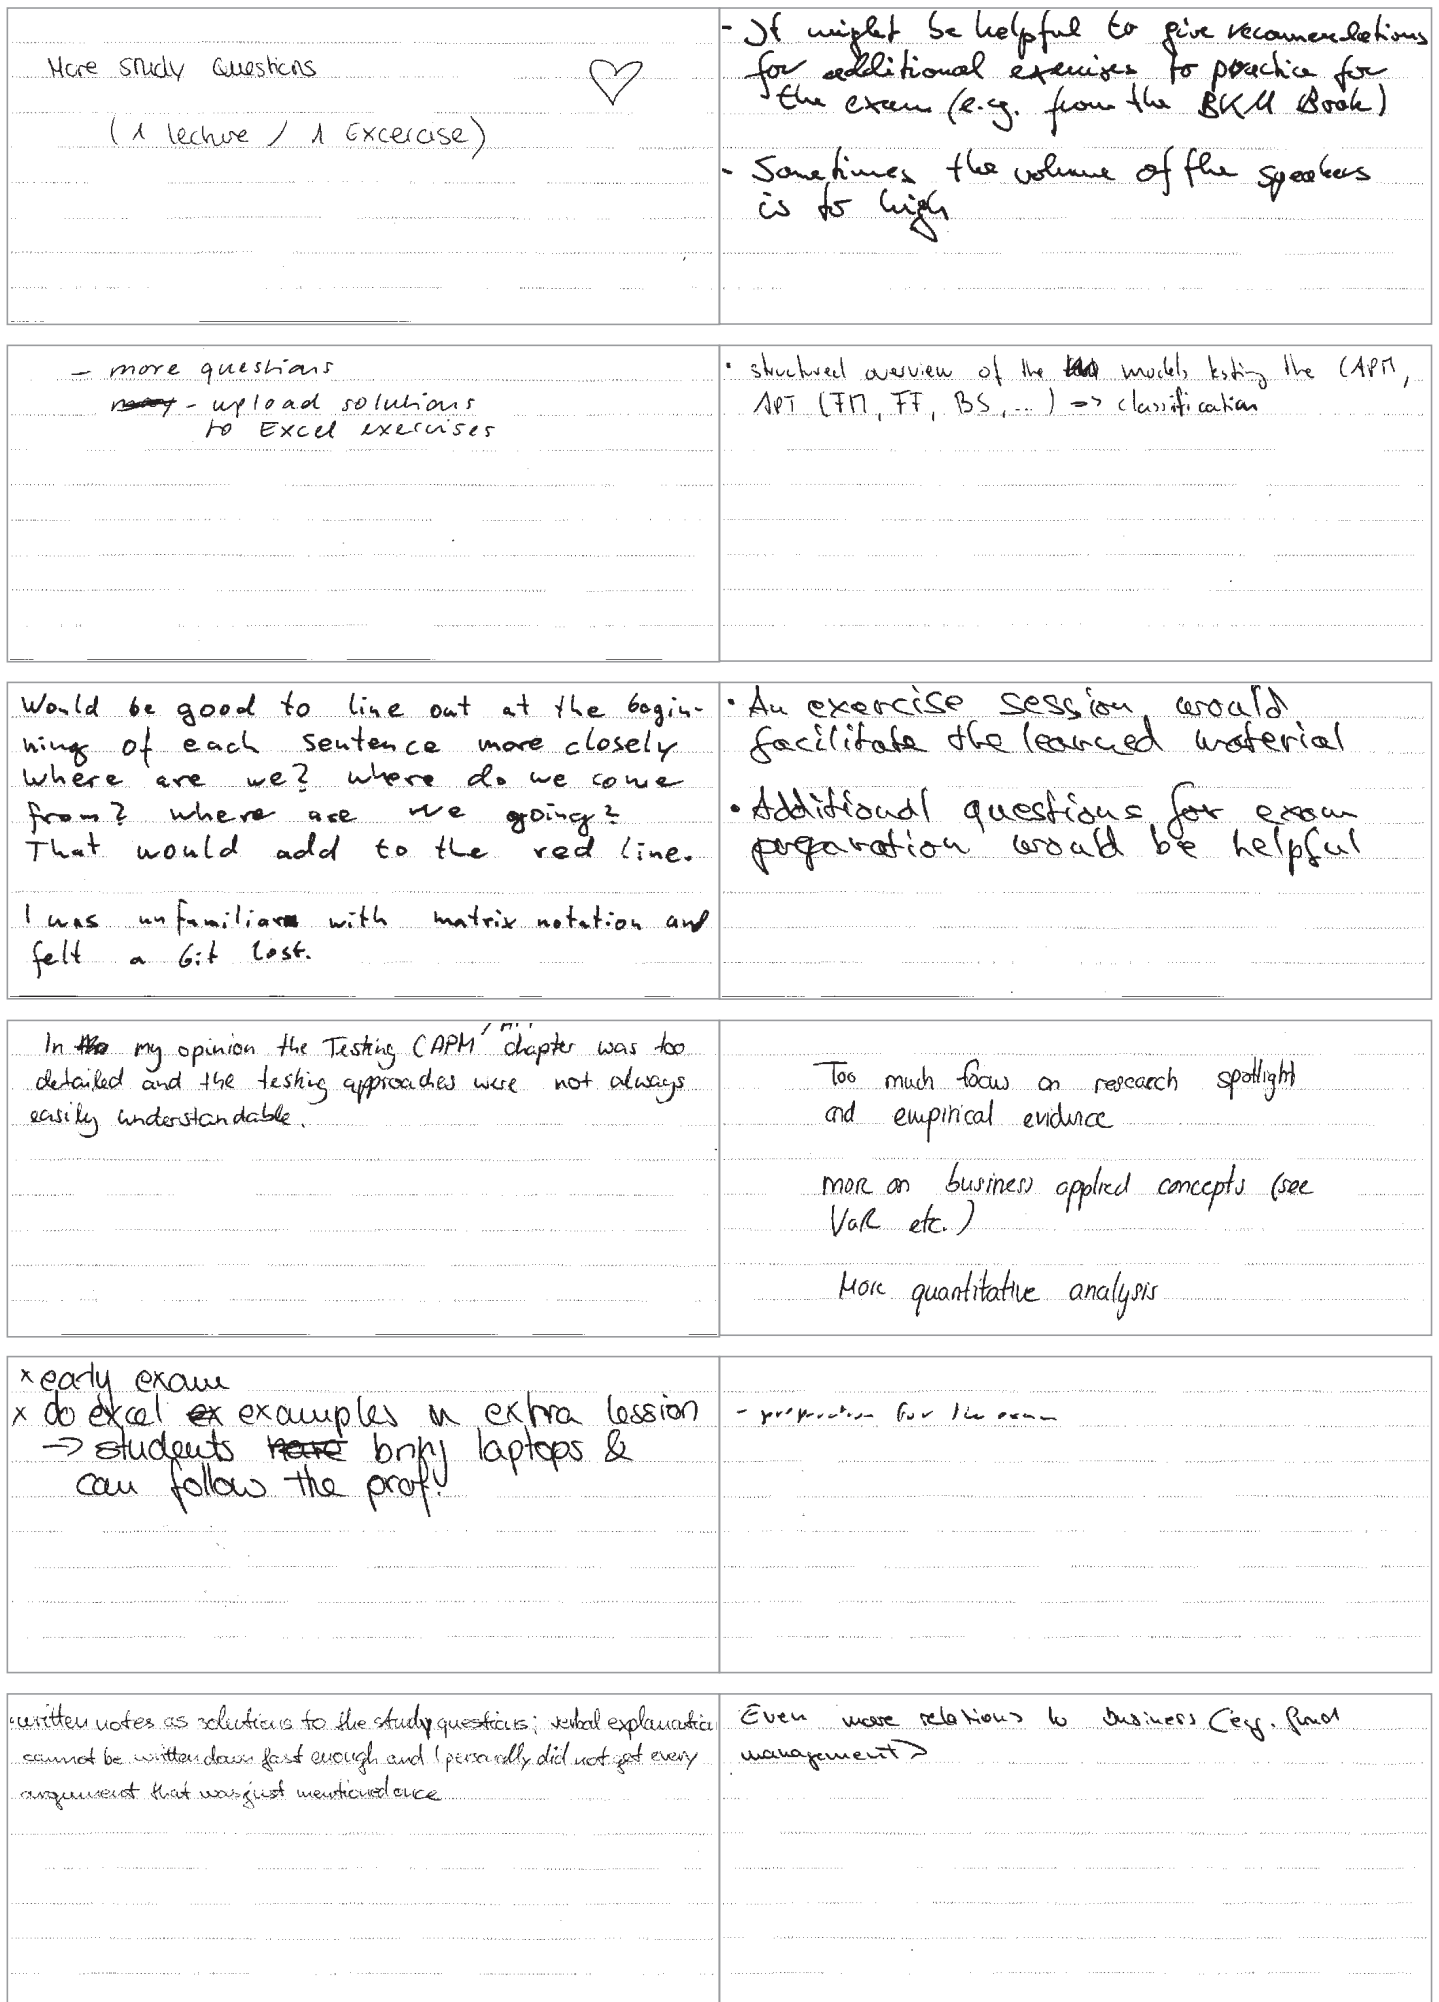 More study Questions
(1 lecture / 1 Excercise)
- It might be helpful to give recommendations
for additional exercises to practice for
the exam (e.g. from the BKM Book)
- Sometimes the volume of the speakers
is to high
- more questions
- upload solutions
to Excel exercises
• structured overview of the models testing the CAPM,
APT (FM, FF, BS, ...) => classification
Would be good to line out at the begin-
ning of each sentence more closely
where are we? where do we come
from? where are we going?
That would add to the red line.
I was unfamiliar with matrix notation and
felt a bit lost.
• An exercise session would
facilitate the learned material
• Additional questions for exam
preparation would be helpful
In my opinion the Testing CAPM chapter was too
detailed and the testing approaches were not always
easily understandable.
Too much focus on research spotlight
and empirical evidence
more on business applied concepts (see
VaR etc.)
More quantitative analysis
x early exam
x do excel examples in extra lession
-> students bring laptops &
can follow the prof.
- preparation for the exam
• written notes as solutions to the study questions; verbal explanation
cannot be written down fast enough and I personally did not get every
argument that was just mentioned once
Even more relations to business (e.g. fund
management)